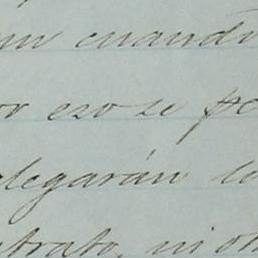 cuando
por eso se pe
alegarán lo
trato, ni ot